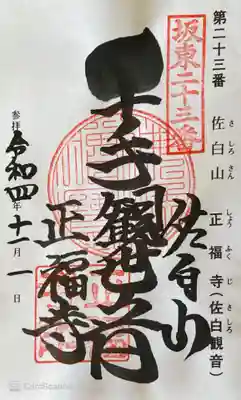 第二十三番 佐白山 正福寺(佐白観音)
さしろさん しょうふくじ さしろ
坂東二十三番
佐白山
千手観世音
正福寺
参拝 令和四年十一月一日
CamScanner